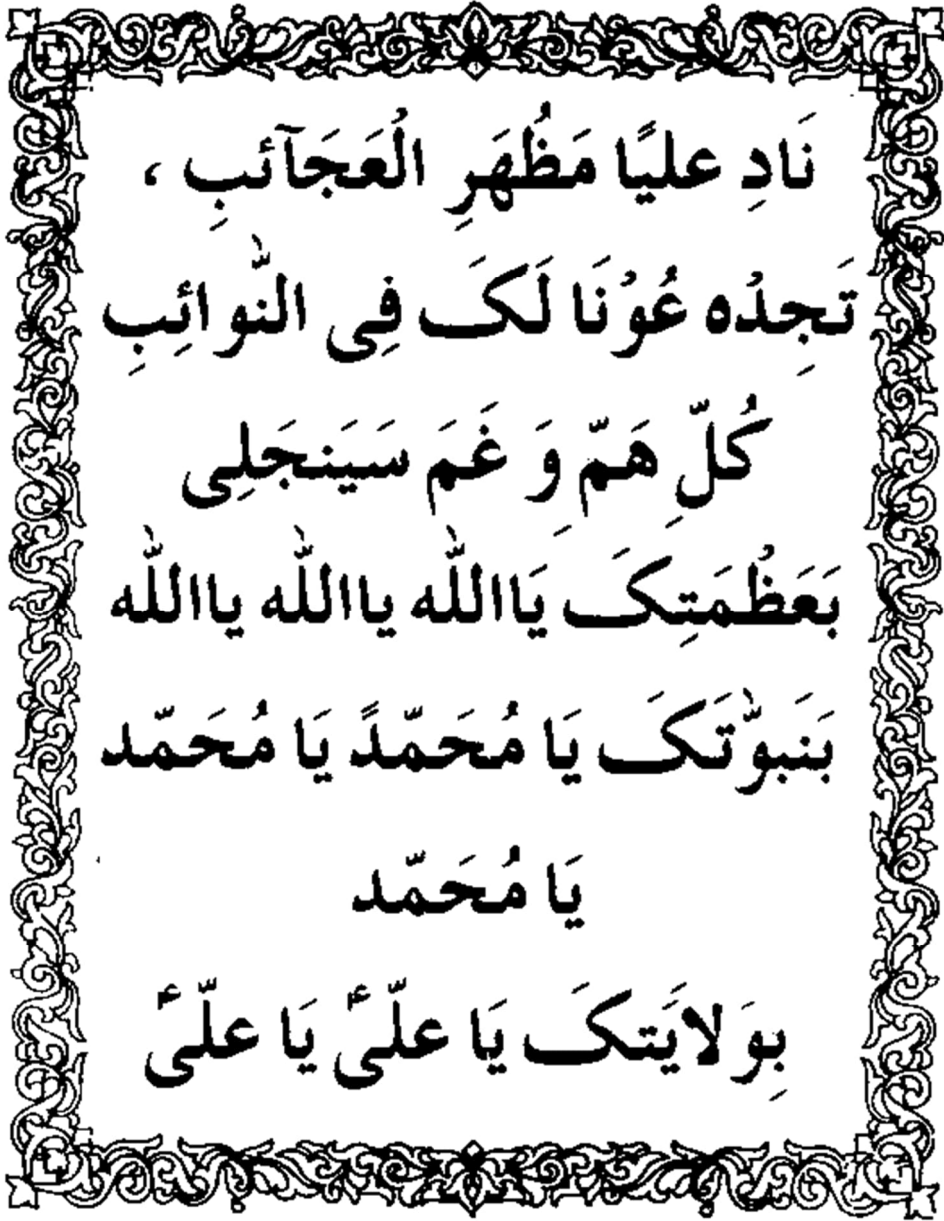 نَادِ عليًا مَظْهَرِ الْعَجَآئبِ ،
تَجِدْه عُوْنَا لَکَ فِی النّٰوائِبِ
کُلّ هَمّ وَ غَمَ سَيَنجَلِی
بَعَظْمَتِکَ يَااللّٰه يااللّٰه يااللّٰه
بَنَبوّٰتَکَ يَا مُحَمّدً يَا مُحَمّد
يَا مُحَمّد
بِوَلايَتکَ يَا علّیؑ يَا علّیؑ